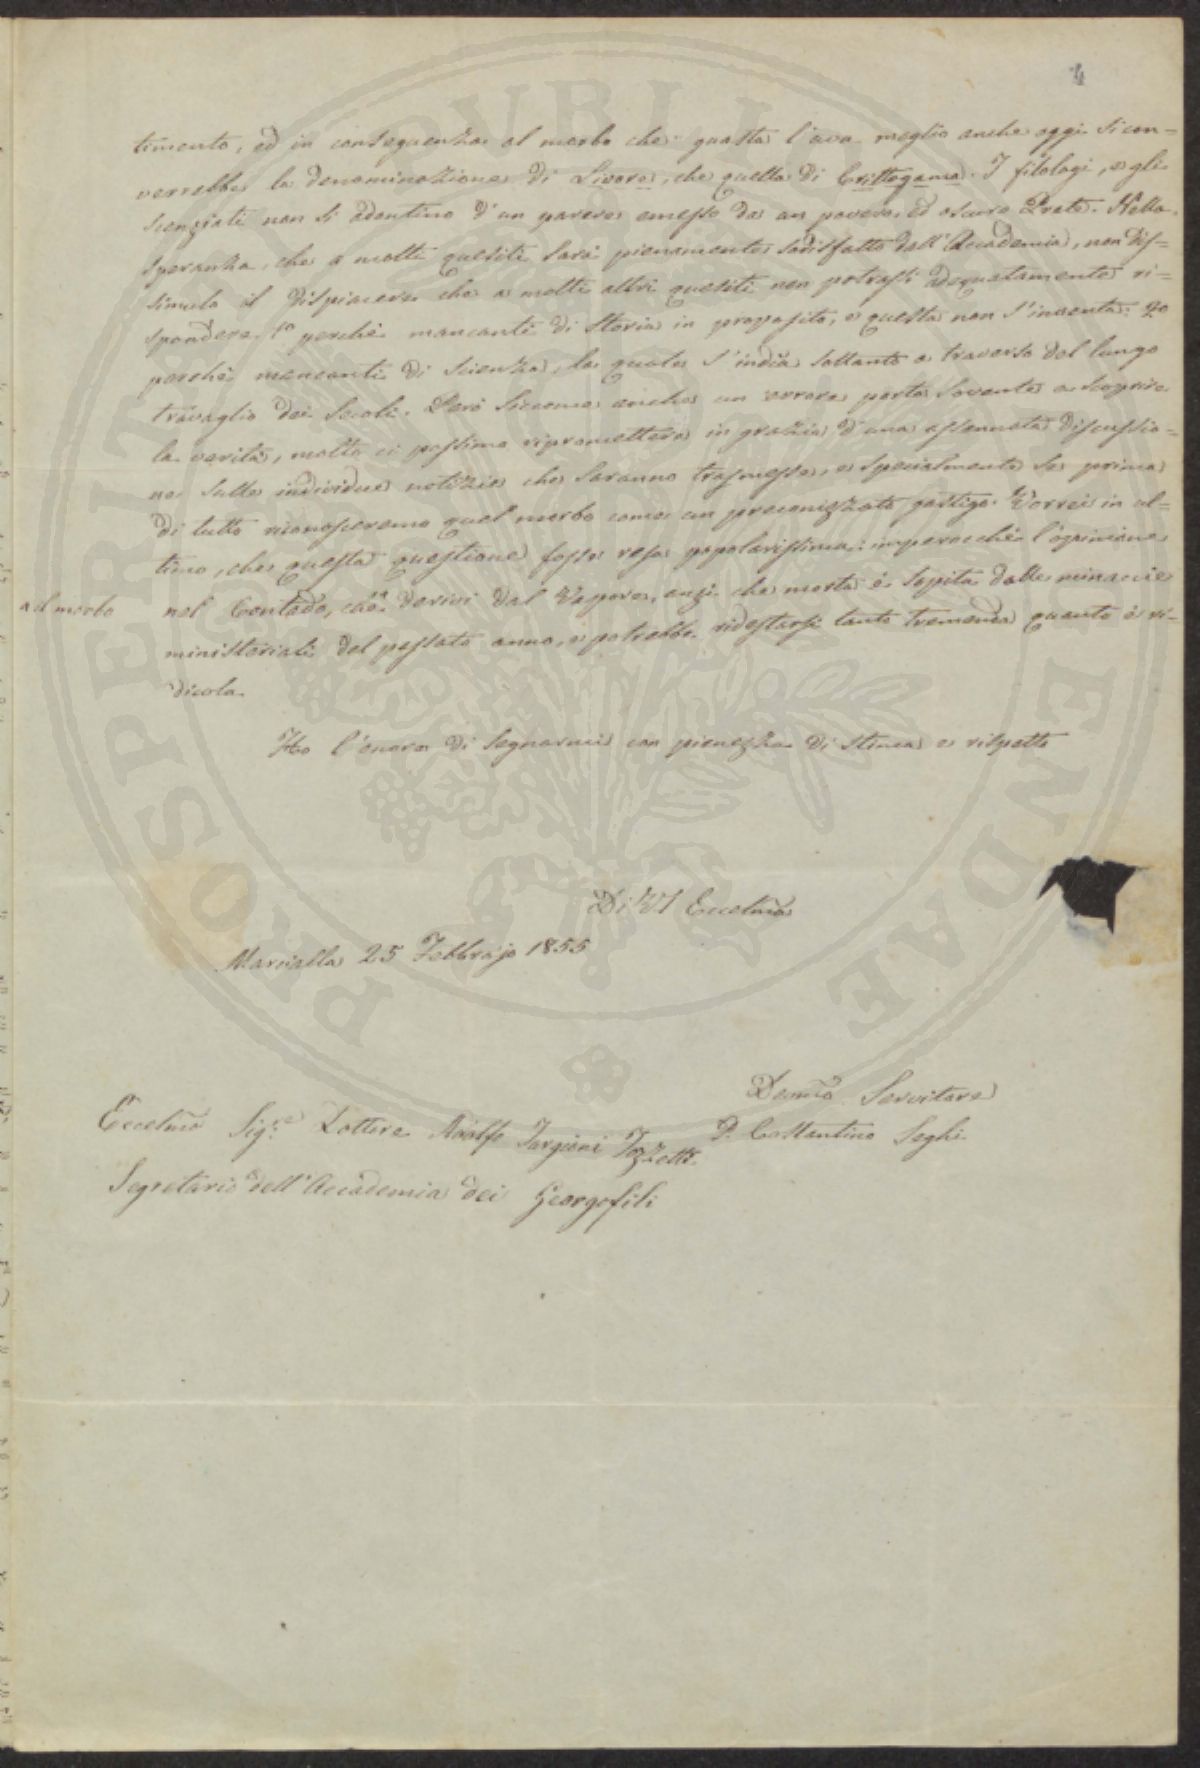 4
timento, ed in conseguenza al morbo che guasta l'uva meglio anche oggi si con=
verrebbe la denominazione di Livore, che quella di Crittogama. I filologi, e gli
scenziati non si adontino d'un parere emesso da un povero, ed oscuro Prete. Nella
speranza, che a molti quesiti sarà pienamente sodisfatto dall'Accademia, non dis=
simulo il dispiacere che a molti altri quesiti non potrassi adequatamente ri=
spondere 1o perchè mancanti di storia in proposito, e questa non s'inventa: 2o
perchè mancanti di scienza, la quale s'india soltanto a traverso del lungo
travaglio dei secoli. Però siccome anche un errore porta sovente a scoprire
la verità, molto ci possiamo ripromettere in grazia d'una assennata discussio=
ne sulle individue notizie che saranno trasmesse, e specialmente se prima
di tutto riconosceremo quel morbo come un preconizzato gastigo. Vorrei in ul=
timo, che questa questione fosse resa popolarissima: imperocchè l'opinione
nel Contado, che derivi dal Vapore, anzi che morta è sopita dalle minaccie
a il morbo
ministeriali del passato anno, e potrebbe ridestarsi tanto tremenda quanto è ri=
dicola.
Ho l'onore di segnarmi con pienezza di stima e rispetto
Di VS Eccelma
Marcialla 25 Febbrajo 1855
Devmo Servitore
P. Costantino Seghi
Eccelmo Sigre Dottore Adolfo Targioni Tozzetti
Segretario dell'Accademia dei Georgofili
PROSPERITATI PUBLICAE AUGENDAE